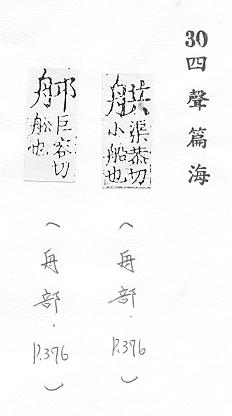 30 四聲篇海
舼 渠恭切 小船也
(舟部.P.376)
巨容切 船也
(舟部.P.376)